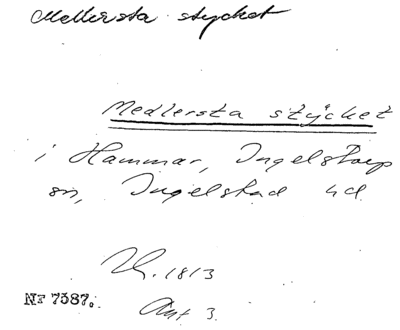 Mellersta stycket
Medlersta stÿcket
i Hammar, Ingelstorp
sn, Ingelstad hd.
1813
Nr 7387.
Akt 3.